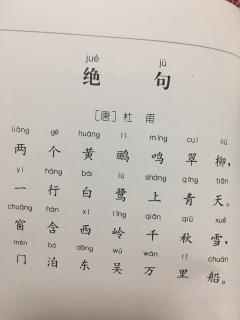 jué jù
绝句
[唐]杜甫
liǎng gè huáng lí míng cuì liǔ
两个黄鹂鸣翠柳,
yì háng bái lù shàng qīng tiān
一行白鹭上青天。
chuāng hán xī lǐng qiān qiū xuě
窗含西岭千秋雪,
mén bó dōng wú wàn lǐ chuán
门泊东吴万里船。